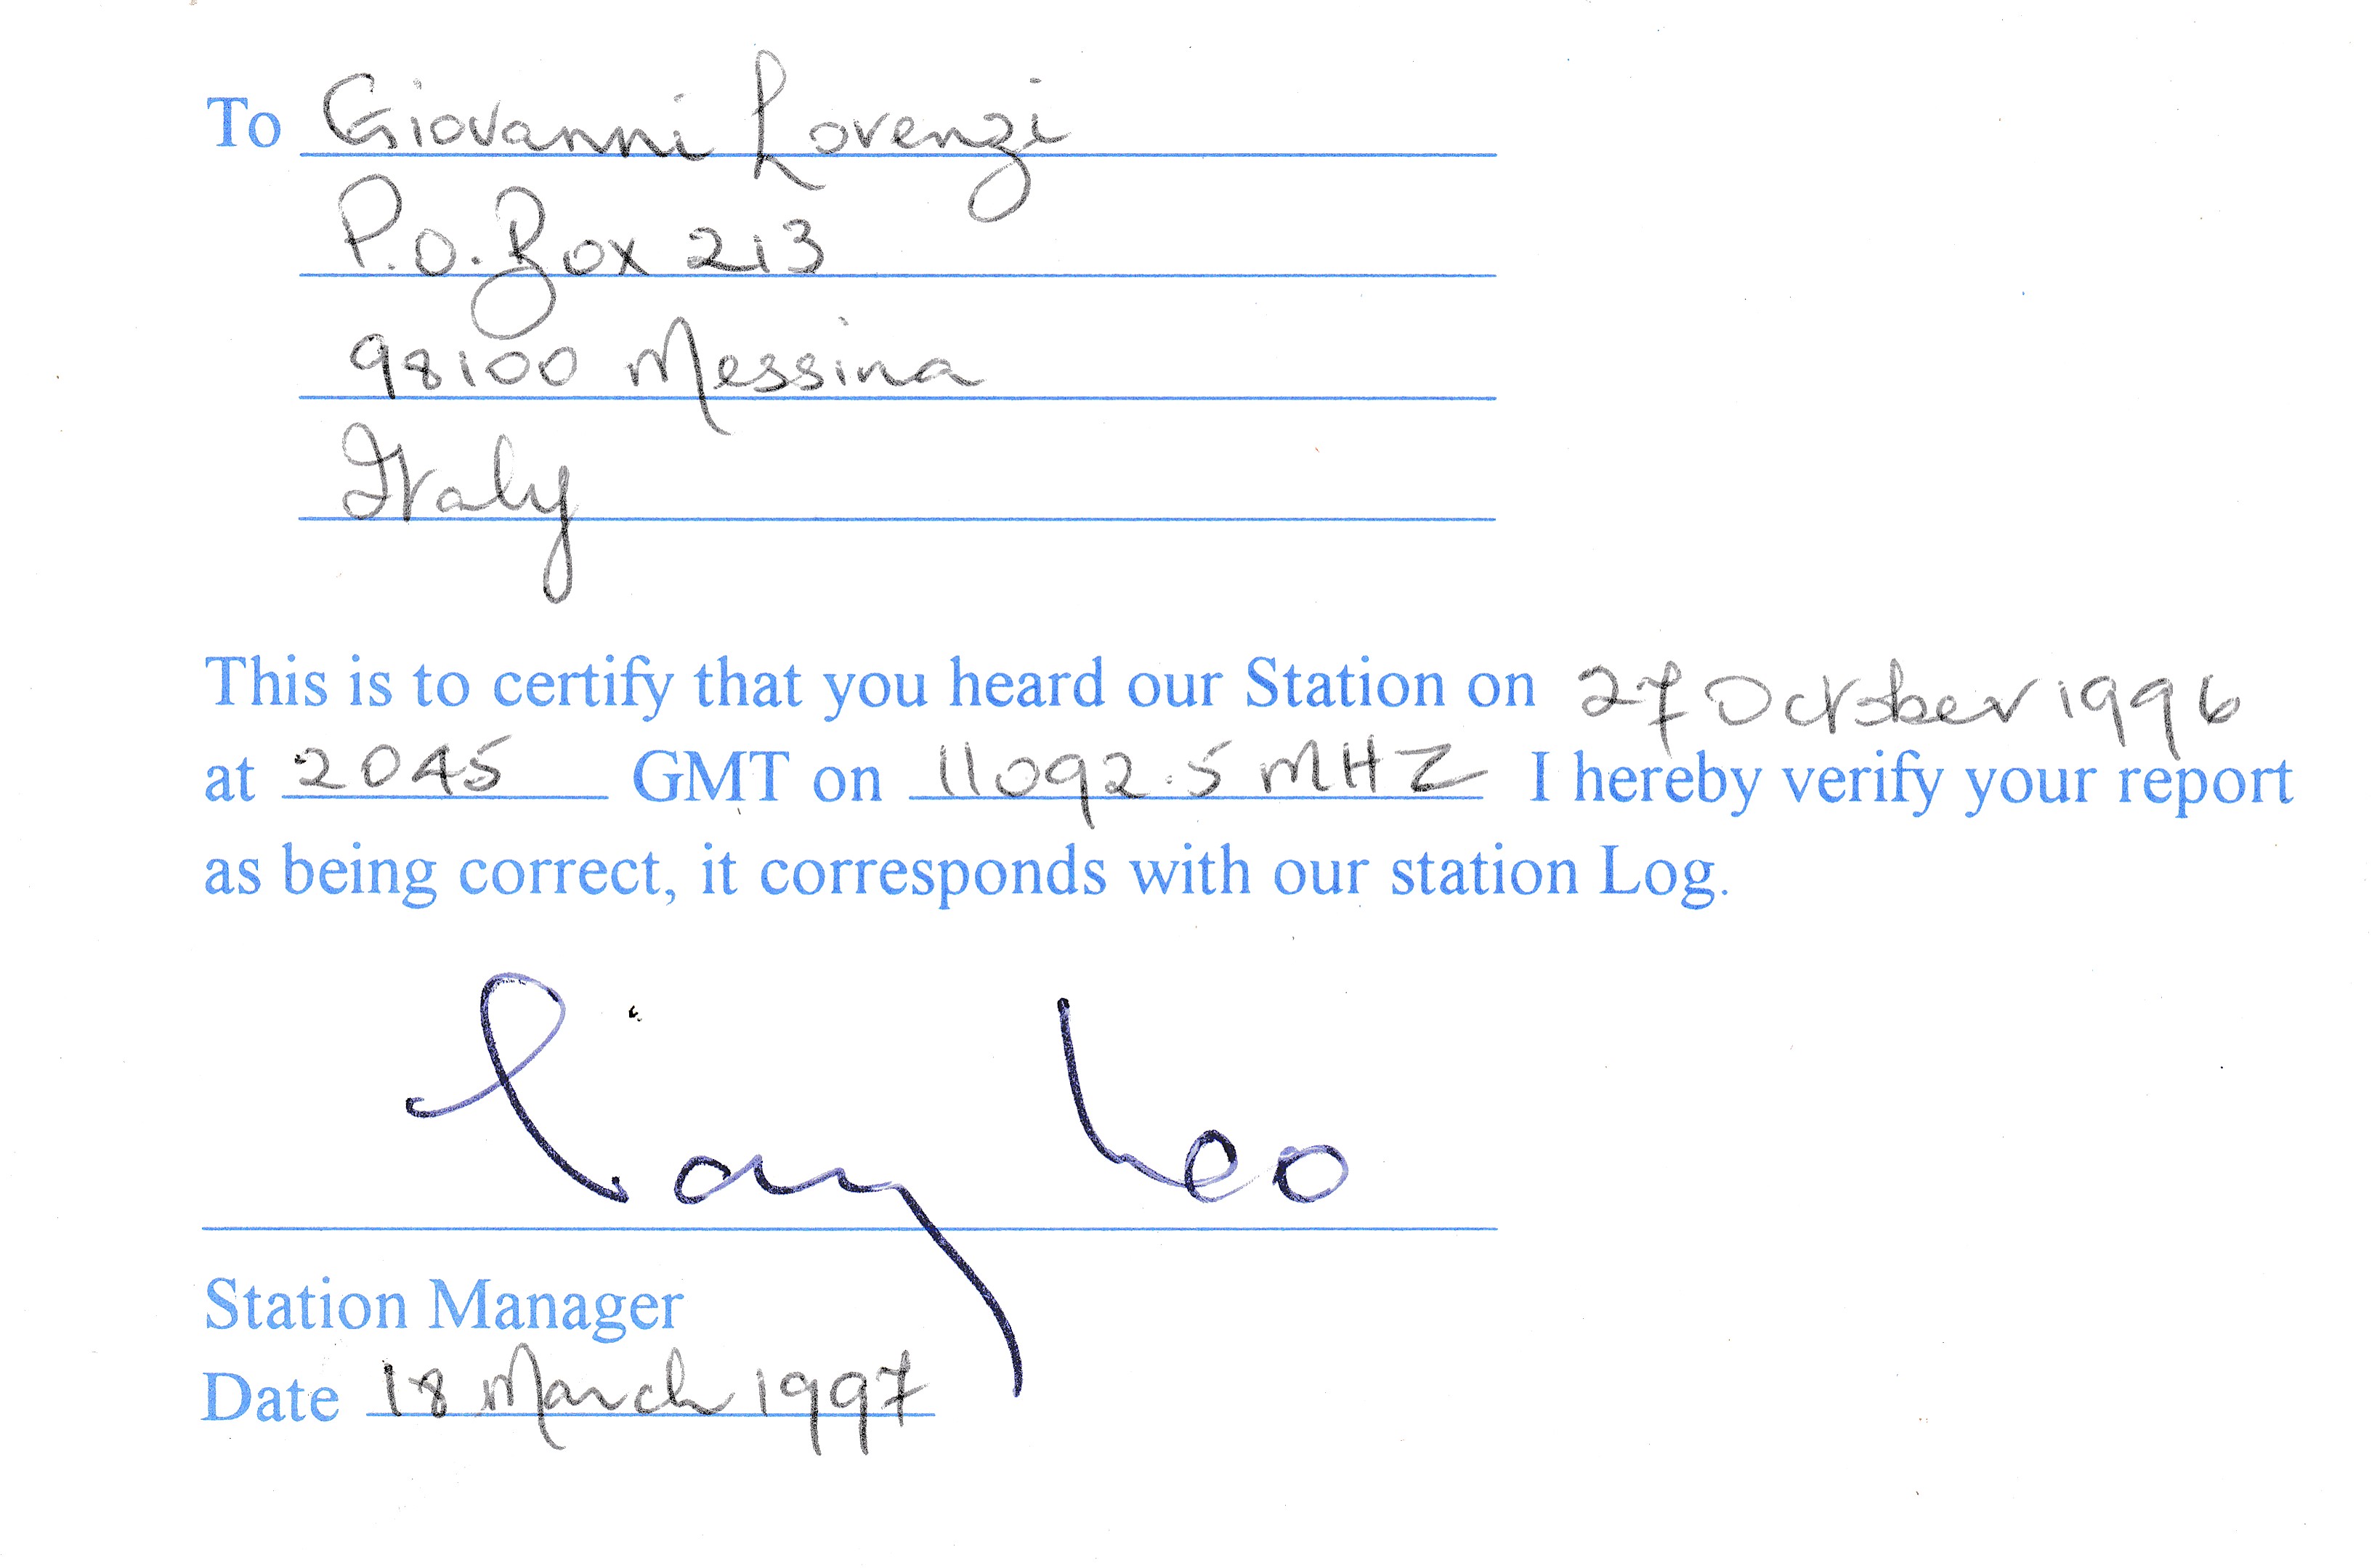 To Giovanni Lorenzi
P.O. Box 213
98100 Messina
Italy
This is to certify that you heard our Station on 27 October 1996
at 2045 GMT on 11092.5 MHZ I hereby verify your report
as being correct, it corresponds with our station Log.
Station Manager
Date 18 March 1997